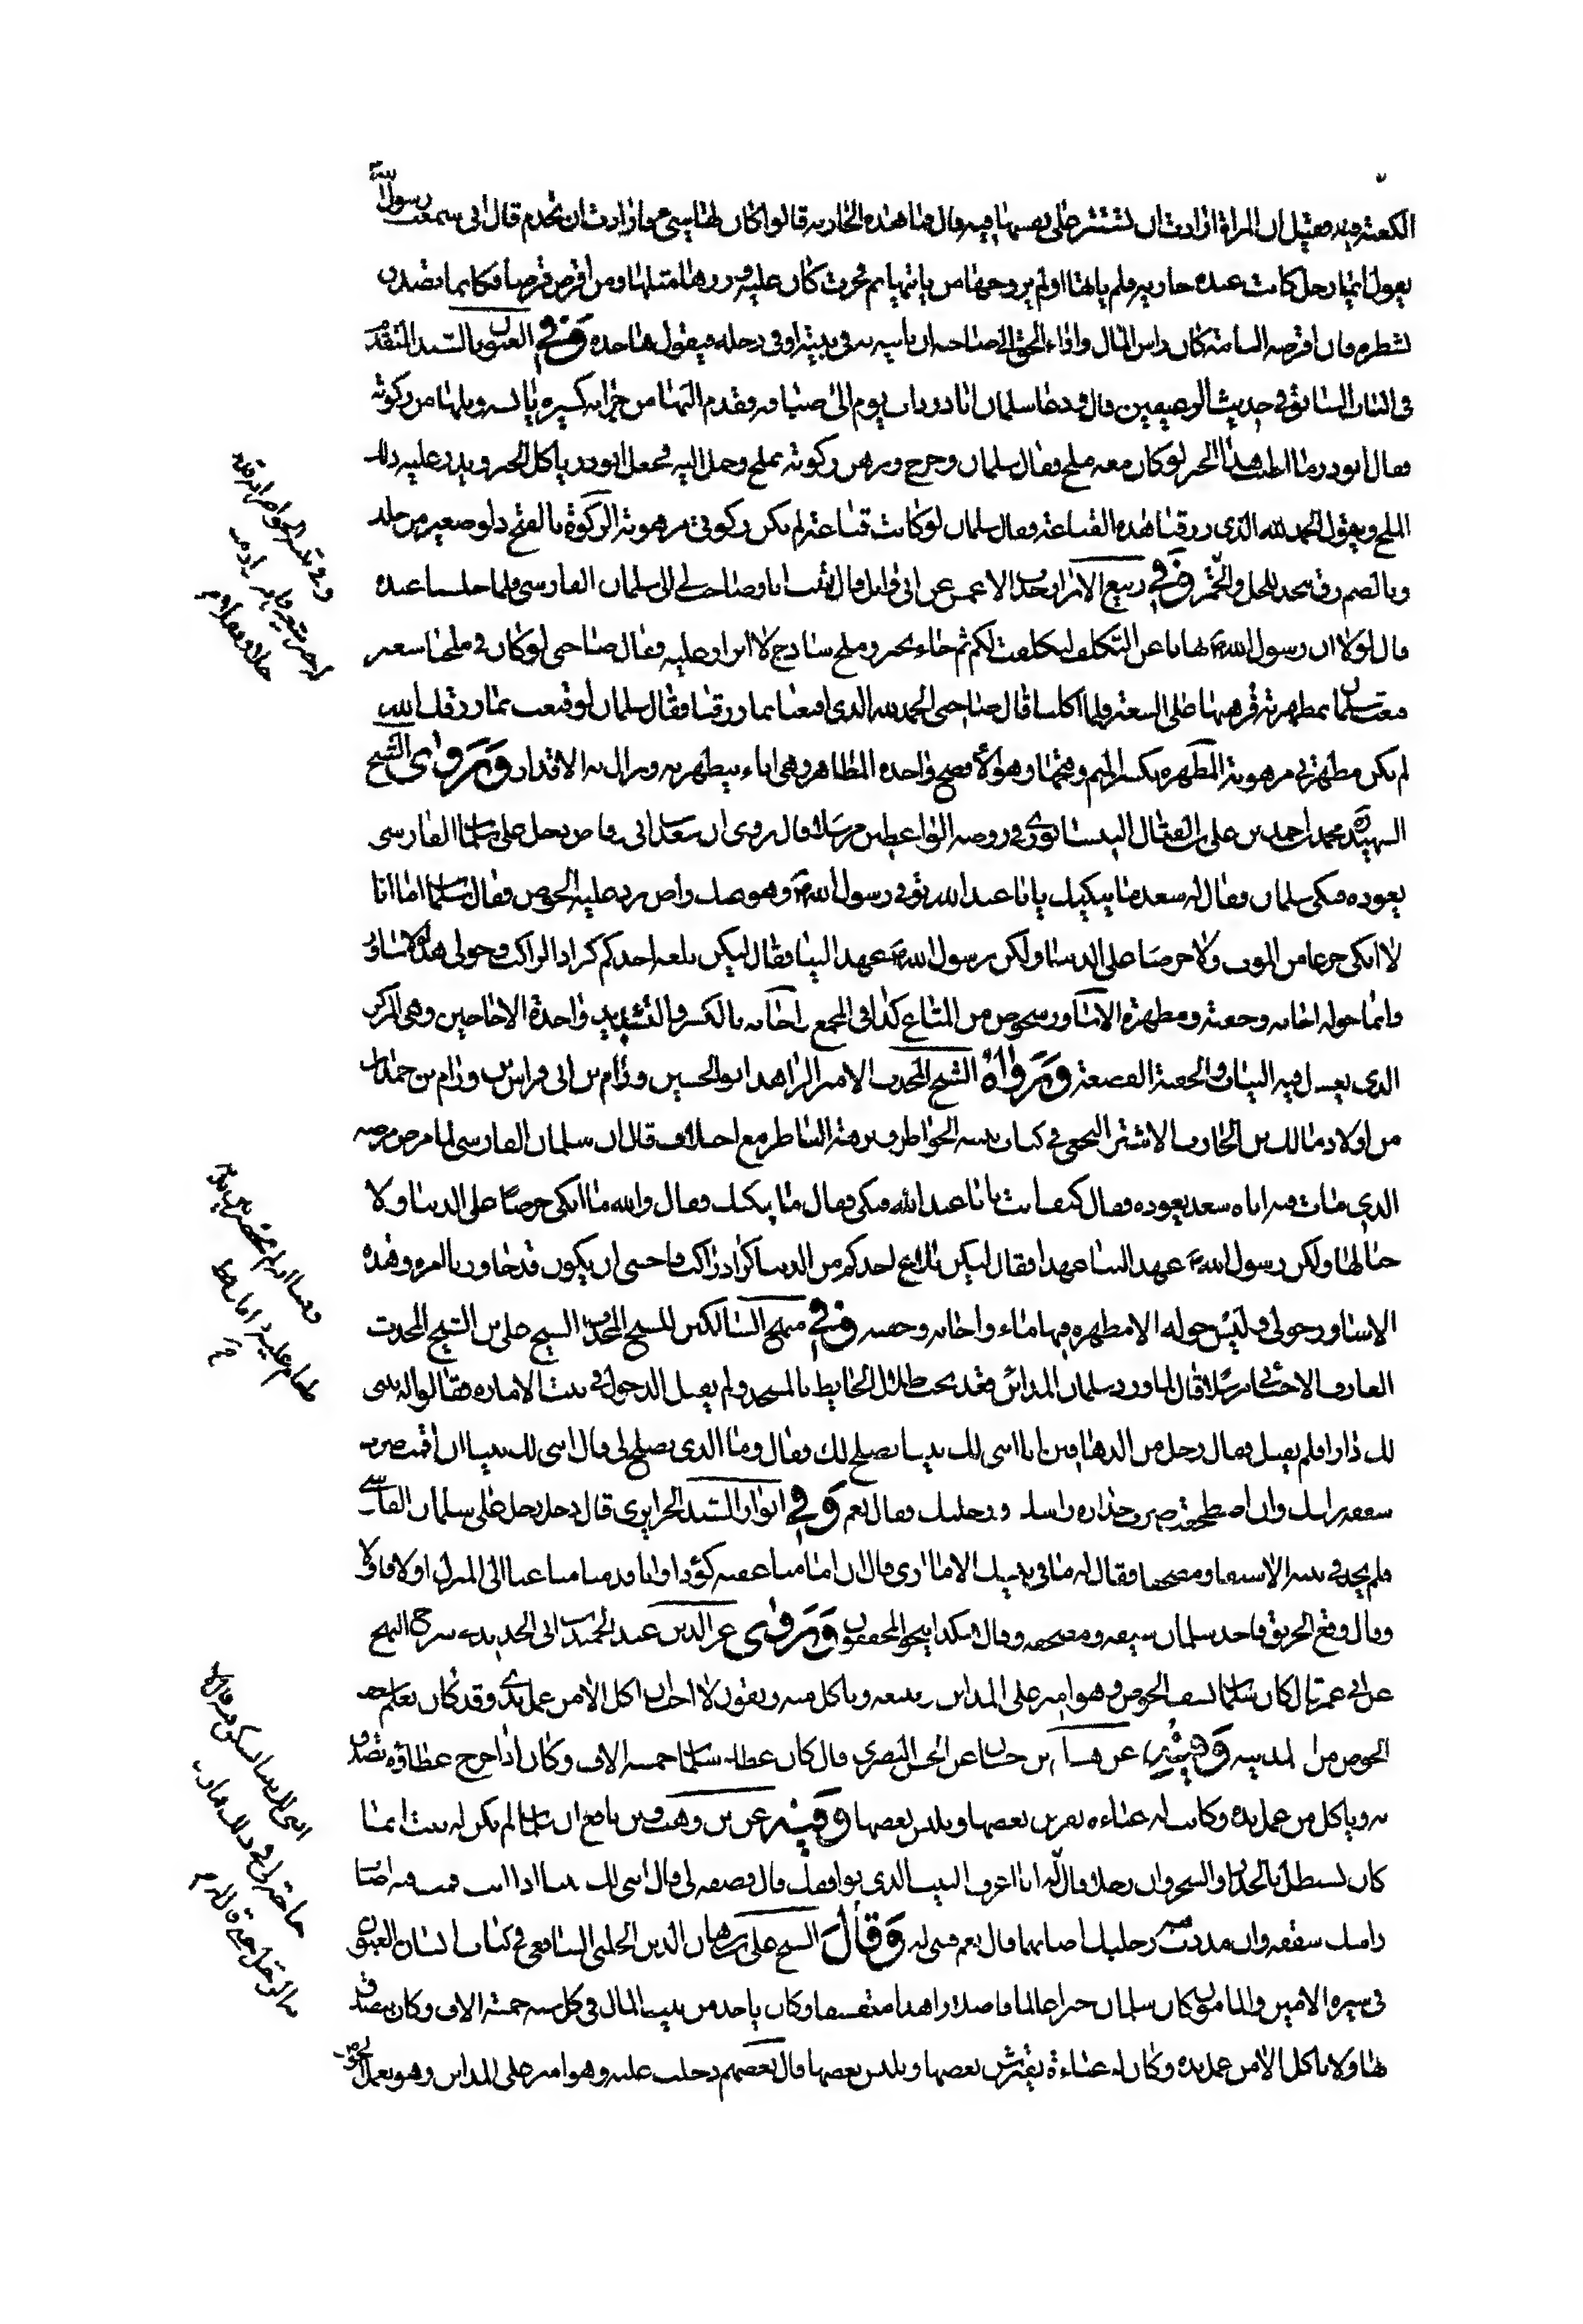 الكعبة فيه فقيل ان المراة ارادت ان تستتر على نفسها فيه قال فما هذه الجارية قالوا كان لها شيء فارادت ان تخدم قال اني سمعت رسول الله
يقول ايما رجل كانت عنده جارية فلم ياتها او لم يزوجها من ياتيها ثم فجرت كان عليه وزر مثلها ومن اقرض قرضا فكانما تصدق
بشطره فان اقرضه الثانية كان راس المال واداء الحق الى صاحبه ان ياتيه به في بيته او في رحله فيقول ها خذه وفي العيون بالسند المتقدم
في الباب السابق في حديث الرغيفين قال ودعا سلمان ابا ذر ذات يوم الى ضيافة فقدم اليه من جرابه كسرة يابسة وبلها من ركوته
فقال ابو ذر ما اطيب هذا الخبز لو كان معه ملح فقام سلمان وخرج ورهن ركوته بملح وحمل اليه فجعل ابو ذر ياكل الخبز ويذر عليه ذلك
الملح ويقول الحمد لله الذي رزقنا هذه القناعة فقال سلمان لو كانت قناعة لم تكن ركوتي مرهونة الركوة بالفتح دلو صغير من جلد
وبالضم زق يتخذ للخل والخمر وفي ربيع الابرار الاعمش عن ابي وائل قال ذهبت انا وصاحب لي الى سلمان الفارسي فلما جلسنا عنده
قال لولا ان رسول الله نهانا عن التكلف لتكلفت لكم ثم جاء بخبز وملح ساذج لا ابزار عليه فقال صاحبي لو كان في ملحنا سعتر
فبعث سلمان بمطهرته فرهنها على السعتر فلما اكلنا قال صاحبي الحمد لله الذي اقنعنا بما رزقنا فقال سلمان لو قنعت بما رزقك الله
لم تكن مطهرتي مرهونة المطهرة بكسر الميم وفتحها وهو الافصح واحدة المطاهر وهي اناء يتطهر به ويزال به الاقذار وروى الشيخ
الشهيد محمد بن احمد بن علي بن الفتال النيسابوري في روضة الواعظين مرسلا قال روي ان سعد بن ابي وقاص دخل على سلمان الفارسي
يعوده فبكى سلمان فقال له سعد ما يبكيك يا ابا عبد الله توفي رسول الله وهو عنك راض ترد عليه الحوض فقال سلمان اما انا
لا ابكي جزعا من الموت ولا حرصا على الدنيا ولكن رسول الله عهد الينا فقال ليكن بلغة احدكم كزاد الراكب وحولي هذه الاساود
وانما حوله اجانة وجفنة ومطهرة الاساود شخوص من المتاع كذا في المجمع اجانة بالكسر والتشديد واحدة الاجاجين وهي المركن
الذي يغسل فيه الثياب والجفنة القصعة ورواه الشيخ المحدث الامير الزاهد ابو الحسين ورام بن ابي فراس بن ورام بن حمدان
من اولاد مالك بن الحارث الاشتر النخعي في كتاب تنبيه الخواطر ونزهة الناظر مع اختلاف قال ان سلمان الفارسي لما مرض مرضه
الذي مات فيه اتاه سعد يعوده فقال كيف انت يا ابا عبد الله فبكى فقال ما يبكيك فقال والله ما ابكي حرصا على الدنيا ولا
حبا لها ولكن رسول الله عهد الينا عهدا فقال ليكن بلاغ احدكم من الدنيا كزاد راكب فاخشى ان يكون قد جاوزنا امره وهذه
الاساود حولي وليس حوله الا مطهرة فيها ماء واجانة وجفنة وفي منهج السالكين للشيخ المحدث الشيخ علي بن الشيخ المحدث
العارف الاحسائي مرسلا قال لما ورد سلمان المدائن فقعد تحت ظلال الحائط بالمسجد ولم يقبل الدخول في بيت الامارة فقالوا له نبني
لك دارا فلم يقبل فقال رجل من الدهاقين انا ابني لك بيتا يصلح لك فقال وما الذي يصلح لي قال ابني لك بيتا ان قمت ضرب
سقفه راسك وان اضطجعت ضرب جداره راسك ورجليك فقال نعم وفي انوار السيد الجزايري قال دخل رجل على سلمان الفارسي
فلم يجد في بيته الا سيفا ومصحفا فقال له ما في بيتك الا ما ارى قال ان امامنا عقبة كؤدا وانا قدمنا متاعنا الى المنزل اولا فاولا
وقال وقع الحريق فاخذ سلمان سيفه ومصحفه وقال هكذا ينجو المخففون وروى عز الدين عبد الحميد بن ابي الحديد في شرح النهج
عن ابي عمر قال كان سلمان يسف الخوص وهو امير على المداين ويبيعه وياكل منه ويقول لا احب ان اكل الا من عمل يدي وقد كان تعلم سف
الخوص من المدينة وفيه عن هشام بن حسان عن الحسن البصري قال كان عطاء سلمان خمسة الاف وكان اذا خرج عطاؤه تصدق
به وياكل من عمل يده وكانت له عباءة يفرش بعضها ويلبس بعضها وفيه عن ابن وهب وابن نافع ان سلمان لم يكن له بيت انما
كان يستظل بالجدر والشجر وان رجلا قال له انا اعرف البيت الذي يوافقك قال فصفه لي قال ابني لك بيتا اذا انت قمت فيه اصاب
راسك سقفه وان مددت فيه رجليك اصابهما قال نعم فبنى له وقال الشيخ علي بن برهان الدين الحلبي الشافعي في كتاب انسان العيون
في سيرة الامين والمامون كان سلمان خيرا عالما فاضلا زاهدا متقشفا وكان ياخذ من بيت المال في كل سنة خمسة الاف وكان يتصدق
بها ولا ياكل الا من عمل يده وكان له عباءة يفترش بعضها ويلبس بعضها قال بعضهم دخلت عليه وهو امير على المداين وهو يعمل الخوص